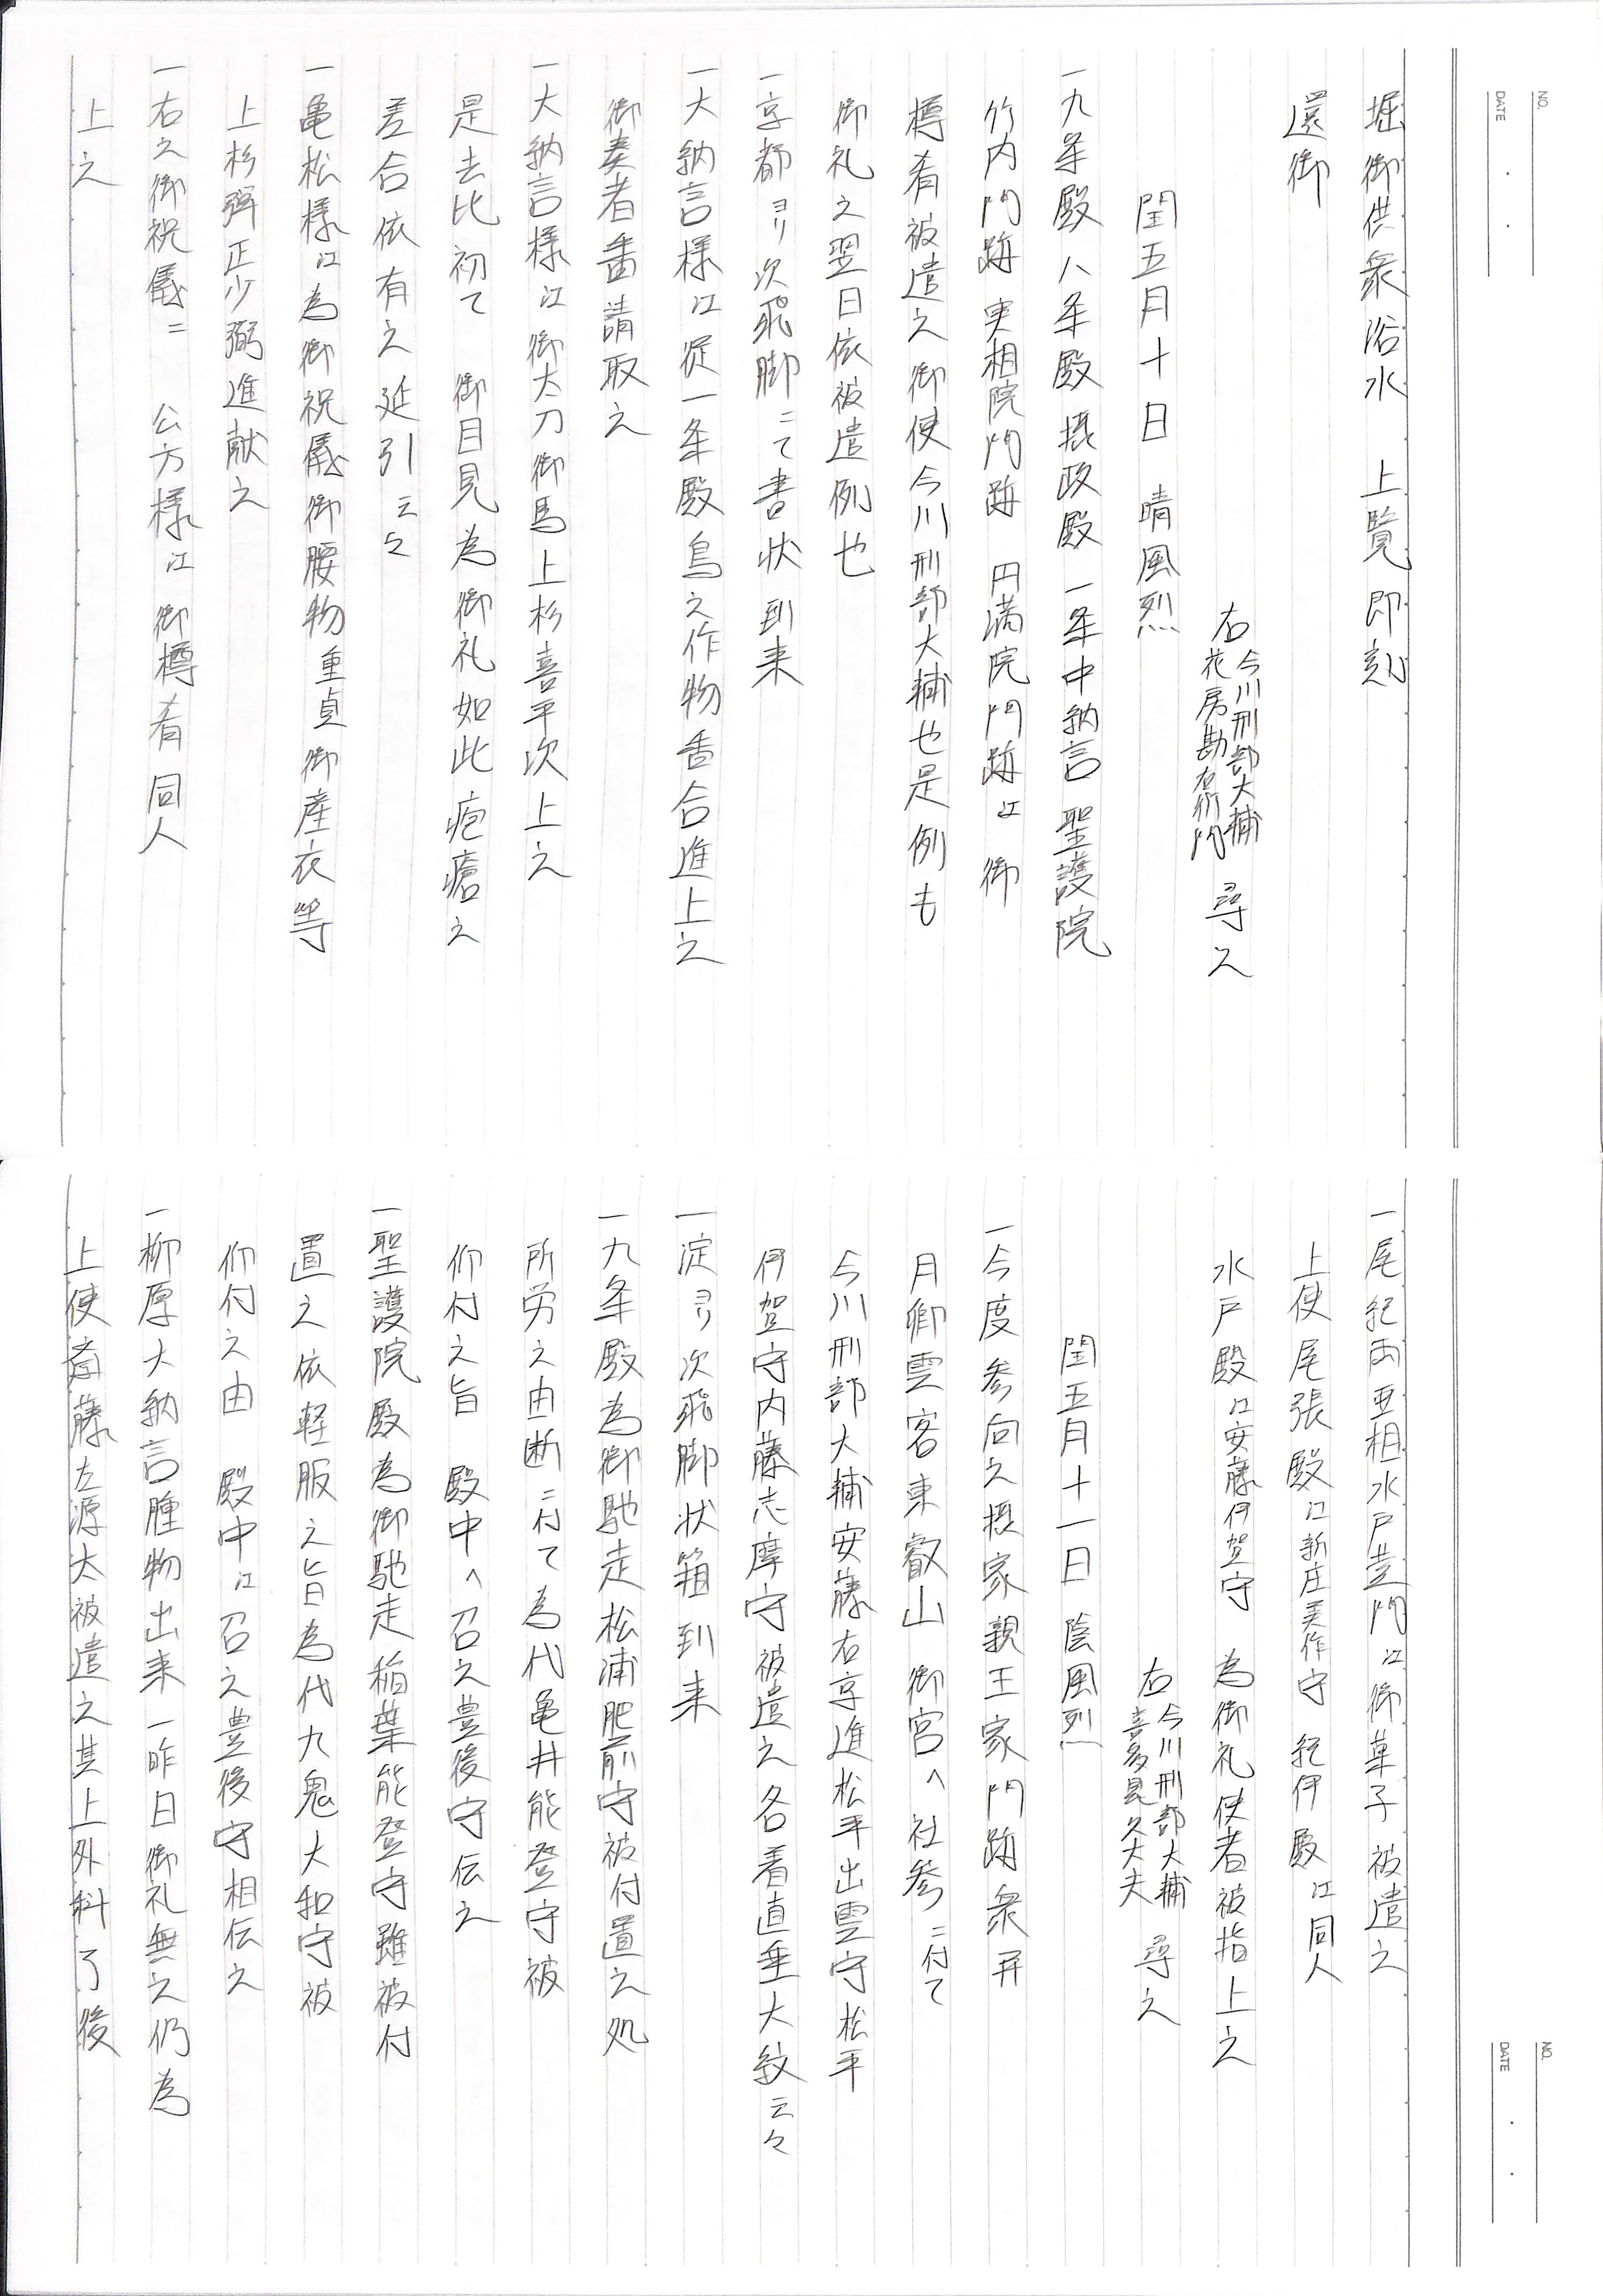 NO.
DATE
堀御供衆浴水　上覧即刻
還御
右 今川刑部大輔 花房勘右衛門 尋之
閏五月十日　晴風烈
一九条殿八条殿摂政殿一条中納言聖護院
竹内門跡実相院門跡円満院門跡江御
樽肴被遣之御使今川刑部大輔也是例も
御礼之翌日依被遣例也
一京都ヨリ次飛脚ニて書状到来
一大納言様江従一条殿鳥之作物香合進上之
御奏者番請取之
一大納言様江御太刀御馬上杉喜平次上之
是去比初て　御目見為御礼如此疱瘡之
差合依有之延引云々
一亀松様江為御祝儀御腰物重貞御産衣等
上杉弾正少弼進献之
一右之御祝儀ニ　公方様江御樽肴同人
上之
NO.
DATE
一尾紀両亜相水戸黄門江御菓子被遣之
上使尾張殿江新庄美作守　紀伊殿江同人
水戸殿江安藤伊賀守　為御礼使者被指上之
右 今川刑部大輔 喜多見久大夫 尋之
閏五月十一日　陰風烈
一今度参向之摂家親王家門跡衆并
月卿雲客東叡山　御宮へ社参ニ付て
今川刑部大輔安藤右京進松平出雲守松平
伊賀守内藤志摩守被遣之各着直垂大紋云々
一淀ヨリ次飛脚状箱到来
一九条殿為御馳走松浦肥前守被付置之処
所労之由断ニ付て為代亀井能登守被
仰付之旨　殿中へ召之豊後守伝之
一聖護院殿為御馳走稲葉能登守雖被付
置之依軽服之旨為代九鬼大和守被
仰付之由　殿中江召之豊後守相伝之
一柳原大納言腫物出来一昨日御礼無之仍為
上使斎藤左源太被遣之其上外科了後